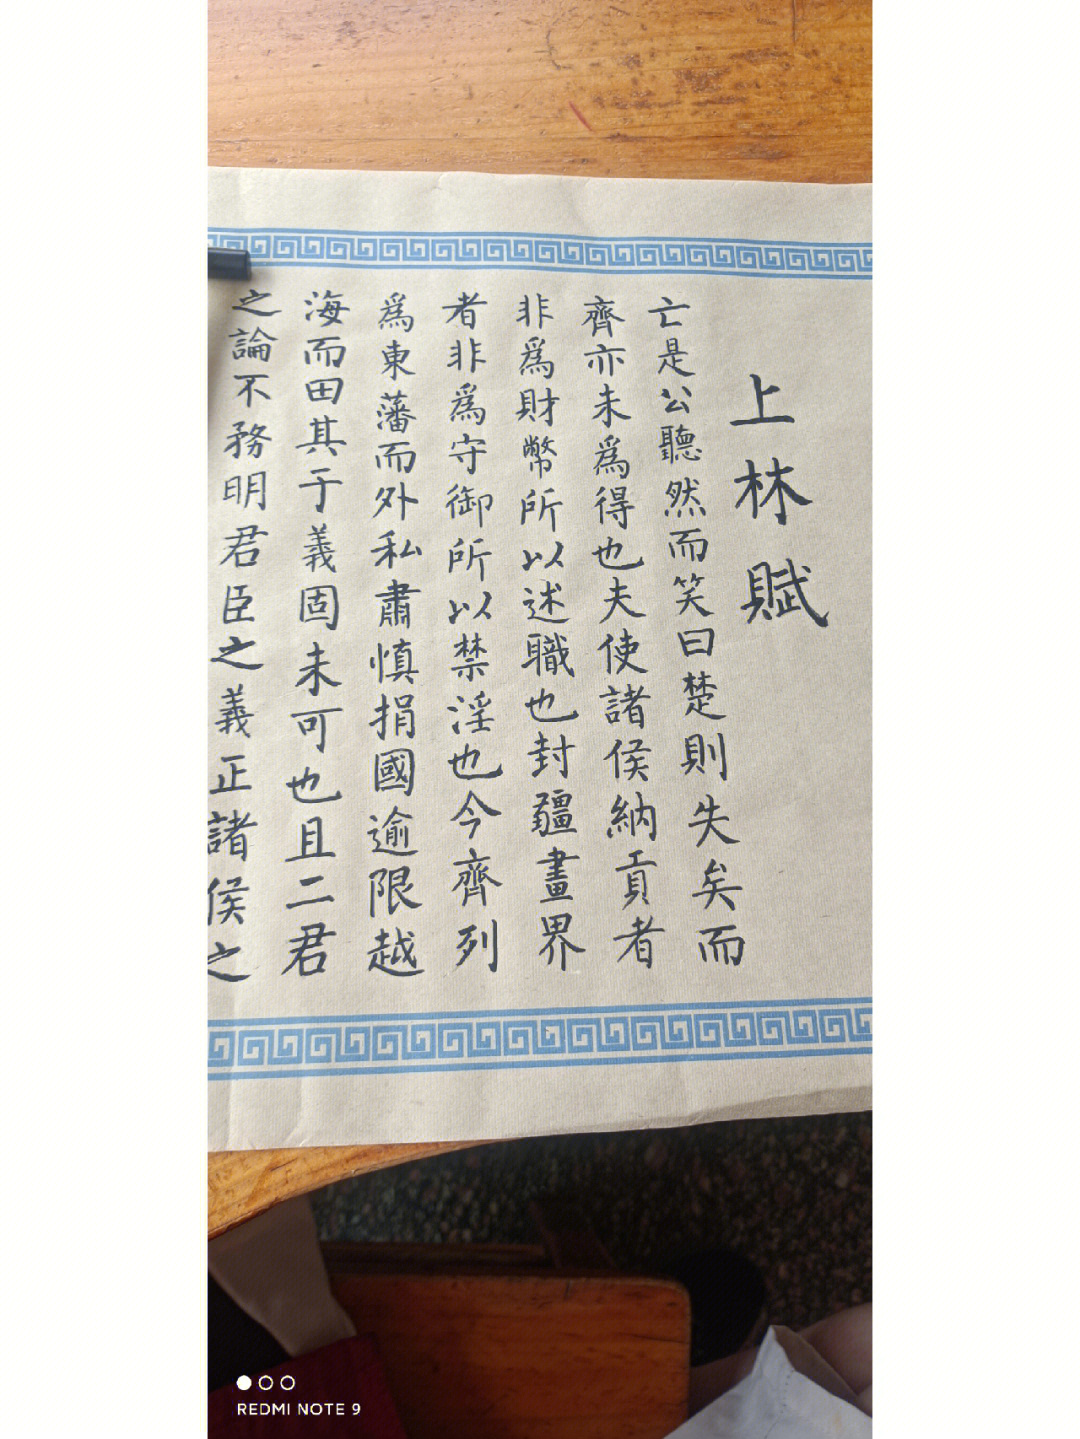 上林賦
亡是公聽然而笑曰楚則失矣而
齊亦未為得也夫使諸侯納貢者
非為財幣所以述職也封疆畫界
者非為守御所以禁淫也今齊列
為東藩而外私肅慎捐國逾限越
海而田其于義固未可也且二君
之論不務明君臣之義正諸侯之
REDMI NOTE 9